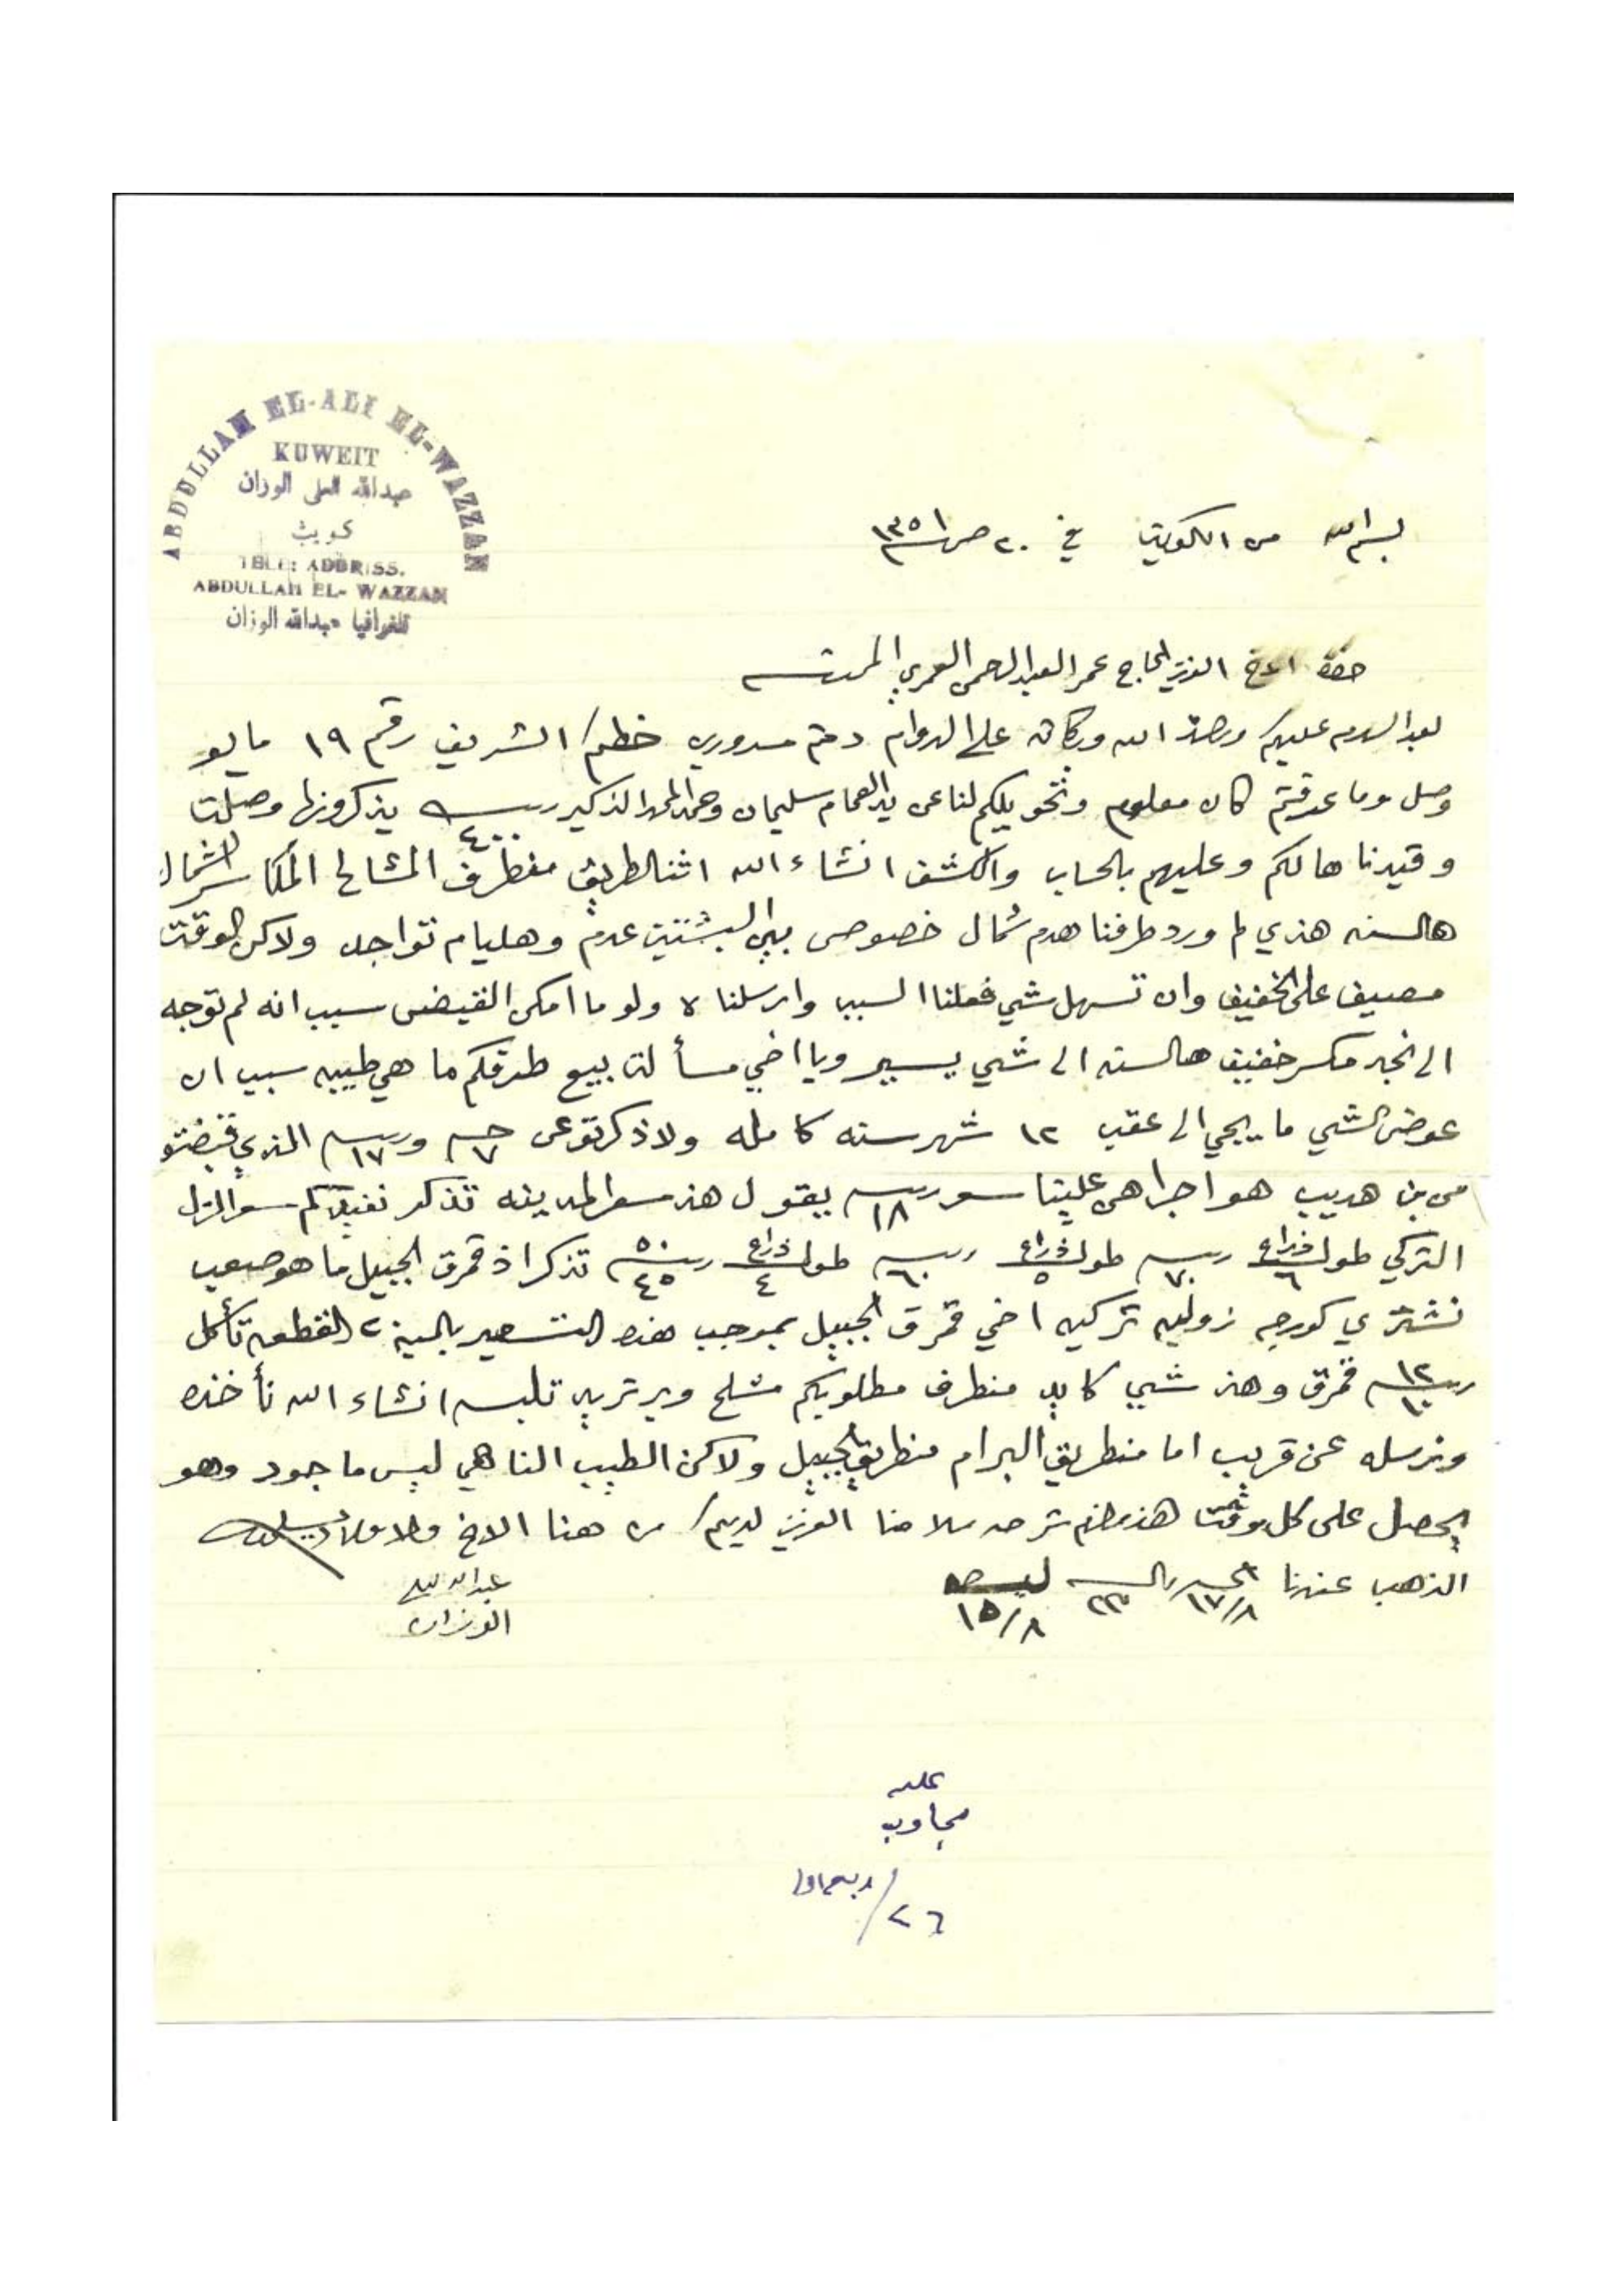 ABDULLAH EL-ALI EL-WAZZAN
KUWEIT
عبدالله العلي الوزان
كويت
TELE: ADDRISS.
ABDULLAH EL- WAZZAN
تلغرافيا عبدالله الوزان
بسم الله من الكويت في ٢٠ ص ١٣٥١
حضرة الاخ العزيز الحاج عمر العبدالرحمن العمري المحترم
بعد السلام عليكم ورحمة الله وبركاته على الدوام دمتم مسرورين خطكم الشريف رقم ١٩ مايو
وصل وما عرفتم كان معلوم وتحويلكم لنا عن يد العمام سليمان وحمد المحمد الذكير ٤٠٠ يذكرونها وصلت
وقيدناها لكم وعليهم بالحساب والكشف انشاء الله اثنا الطريق منطرف المشالح
هالسنه هذي لم ورد طرفنا هدم شمال خصوص عدم وهليام تواجد ولاكن الوقت
مصيف على الخفيف وان تسهل شي فعلنا السبب وارسلناه ولو ما امكن القيض سبب انه لم توجه
الى نجد مكسر خفيف هالسنه الى شي يسير ويا اخي مسألت بيع طرفكم ما هي طيبه سبب ان
عوض الشي ما يجي الى عقب ١٢ شهر سنه كامله ولا ذكرتو عن ٧ و ١٧ الذي قبضتو
من بن هديب هو اجراهن علينا سعر ١٨ يقول هذ سعر المدينه تذكر نفيدكم سعر الزل
التركي طول ذراع ٦ ٧٠ طول ذراع ٥ ٦٠ طول ذراع ٤ ٥٠ ٤٥ تذكر اذ قمرق الجبيل ما هو صعب
نشتري كورجه زوليه تركيه اخي قمرق الجبيل بموجب هذه التسعير بالمية القطعه تأكل
١٢ ١٠ قمرق وهذ شي كايد منطرف مطلوبكم مشلح وبر تريد تلبسه انشاء الله نأخذه
ونرسله عن قريب اما منطريق البرام منطريق الجبيل ولاكن الطيب الناهي ليس ماجود وهو
يحصل على كل وقت هذ مالزم شرحه سلامنا العزيز لديكم من هنا الاخ والاولاد
الذهب عندنا ١٧/٨ ٢٢ ليره ١٥/٨
عبدالله العلي
الوزان
عليه
مجاوب
٢٦/ ربيع اول